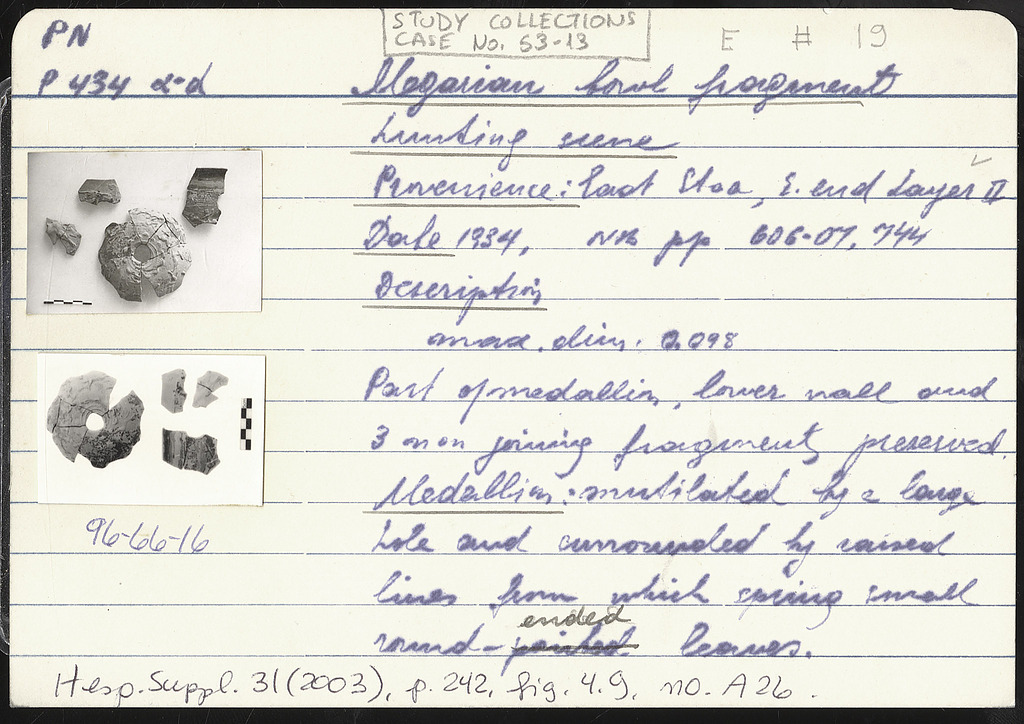 STUDY COLLECTIONS
CASE No. 53-13
E # 19
PN
P 434 α-d
Megarian bowl fragment
hunting scene
Provenience: East Stoa, E. end Layer II
Date 1934, NB pp 606-07, 744
Description
max. dim. 0.098
Part of medallion, lower wall and
3 non joining fragments preserved.
Medallion: mutilated by a large
hole and surrounded by raised
lines from which spring small
ended
round-pointed leaves.
96-66-16
Hesp. Suppl. 31 (2003), p. 242, fig. 4.9, no. A26.